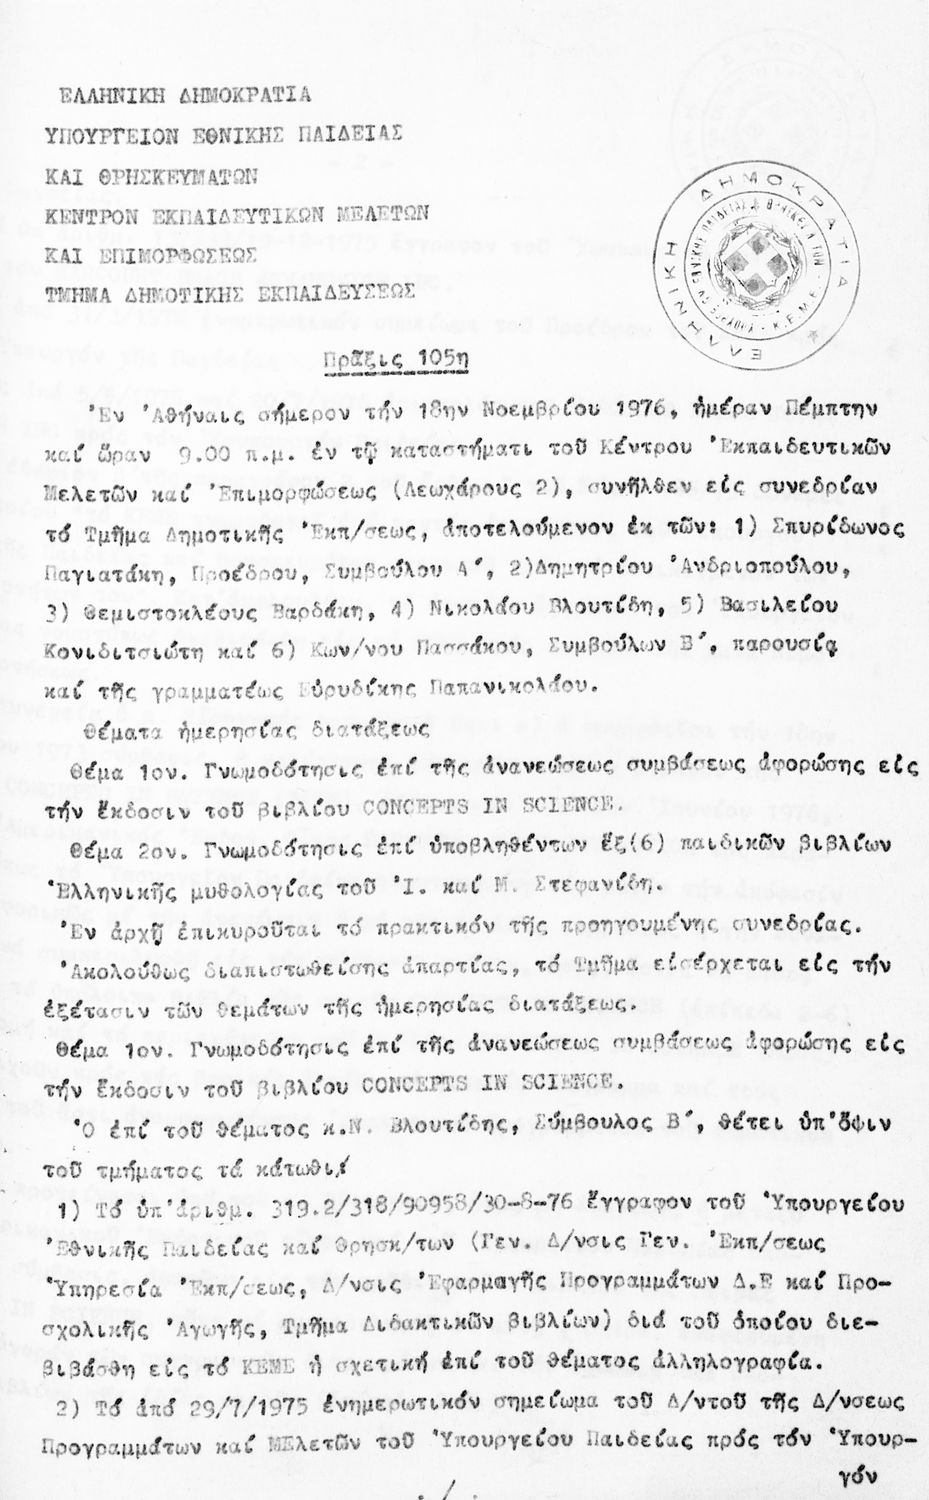 ΕΛΛΗΝΙΚΗ ΔΗΜΟΚΡΑΤΙΑ
ΥΠΟΥΡΓΕΙΟΝ ΕΘΝΙΚΗΣ ΠΑΙΔΕΙΑΣ
ΚΑΙ ΘΡΗΣΚΕΥΜΑΤΩΝ
ΚΕΝΤΡΟΝ ΕΚΠΑΙΔΕΥΤΙΚΩΝ ΜΕΛΕΤΩΝ
ΚΑΙ ΕΠΙΜΟΡΦΩΣΕΩΣ
ΤΜΗΜΑ ΔΗΜΟΤΙΚΗΣ ΕΚΠΑΙΔΕΥΣΕΩΣ
ΕΛΛΗΝΙΚΗ ΔΗΜΟΚΡΑΤΙΑ
Κ.Ε.Μ.Ε.
Πρᾶξις 105η
Ἐν Ἀθήναις σήμερον τήν 18ην Νοεμβρίου 1976, ἡμέραν Πέμπτην
καί ὥραν 9.00 π.μ. ἐν τῷ καταστήματι τοῦ Κέντρου Ἐκπαιδευτικῶν
Μελετῶν καί Ἐπιμορφώσεως (Λεωχάρους 2), συνῆλθεν είς συνεδρίαν
τό Τμῆμα Δημοτικῆς Ἐκπ/σεως, ἀποτελούμενον ἐκ τῶν: 1) Σπυρίδωνος
Παγιατάκη, Προέδρου, Συμβούλου Α΄, 2)Δημητρίου Ἀνδριοπούλου,
3) Θεμιστοκλέους Βαρδάκη, 4) Νικολάου Βλουτίδη, 5) Βασιλείου
Κονιδιτσιώτη καί 6) Κων/νου Πασσάκου, Συμβούλων Β΄, παρουσίᾳ
καί τῆς γραμματέως Εὐρυδίκης Παπανικολάου.
Θέματα ἡμερησίας διατάξεως
Θέμα 1ον. Γνωμοδότησις ἐπί τῆς ἀνανεώσεως συμβάσεως ἀφορώσης είς
τήν ἔκδοσιν τοῦ βιβλίου CONCEPTS IN SCIENCE.
Θέμα 2ον. Γνωμοδότησις ἐπί ὑποβληθέντων ἕξ(6) παιδικῶν βιβλίων
Ἑλληνικῆς μυθολογίας τοῦ Ἰ. καί Μ. Στεφανίδη.
Ἐν ἀρχῇ ἐπικυροῦται τό πρακτικόν τῆς προηγουμένης συνεδρίας.
Ἀκολούθως διαπιστωθείσης ἀπαρτίας, τό Τμῆμα εἰσέρχεται εἰς τήν
ἐξέτασιν τῶν θεμάτων τῆς ἡμερησίας διατάξεως.
Θέμα 1ον. Γνωμοδότησις ἐπί τῆς ἀνανεώσεως συμβάσεως ἀφορώσης είς
τήν ἔκδοσιν τοῦ βιβλίου CONCEPTS IN SCIENCE.
Ὁ ἐπί τοῦ θέματος κ.Ν. Βλουτίδης, Σύμβουλος Β΄, θέτει ὑπ'ὄψιν
τοῦ τμήματος τά κάτωθι:
1) Τό ὑπ'ἀριθμ. 319.2/318/90958/30-8-76 ἔγγραφον τοῦ Ὑπουργείου
Ἐθνικῆς Παιδείας καί Θρησκ/των (Γεν. Δ/νσις Γεν. Ἐκπ/σεως
Ὑπηρεσία Ἐκπ/σεως, Δ/νσις Ἐφαρμαγῆς Προγραμμάτων Δ.Ε καί Προ-
σχολικῆς Ἀγωγῆς, Τμῆμα Διδακτικῶν βιβλίων) διά τοῦ ὁποίου διε-
βιβάσθη είς τό ΚΕΜΕ ἡ σχετική ἐπί τοῦ θέματος ἀλληλογραφία.
2) Τό ἀπό 29/7/1975 ἐνημερωτικόν σημείωμα τοῦ Δ/ντοῦ τῆς Δ/νσεως
Προγραμμάτων καί ΜΕλετῶν τοῦ Ὑπουργείου Παιδείας πρός τόν Ὑπουρ-
γόν
./.